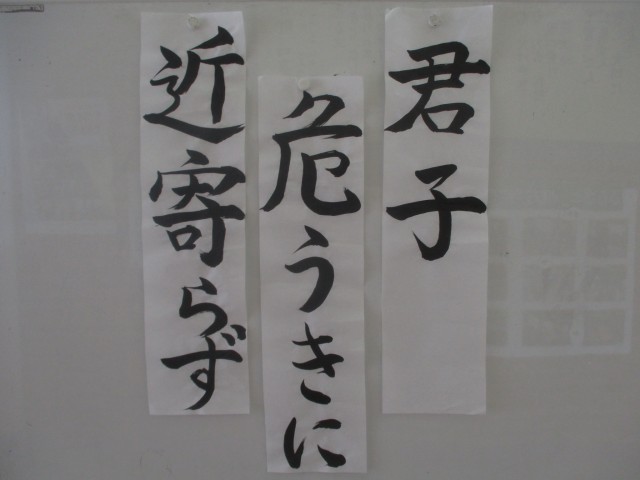 君子
危うきに
近寄らず